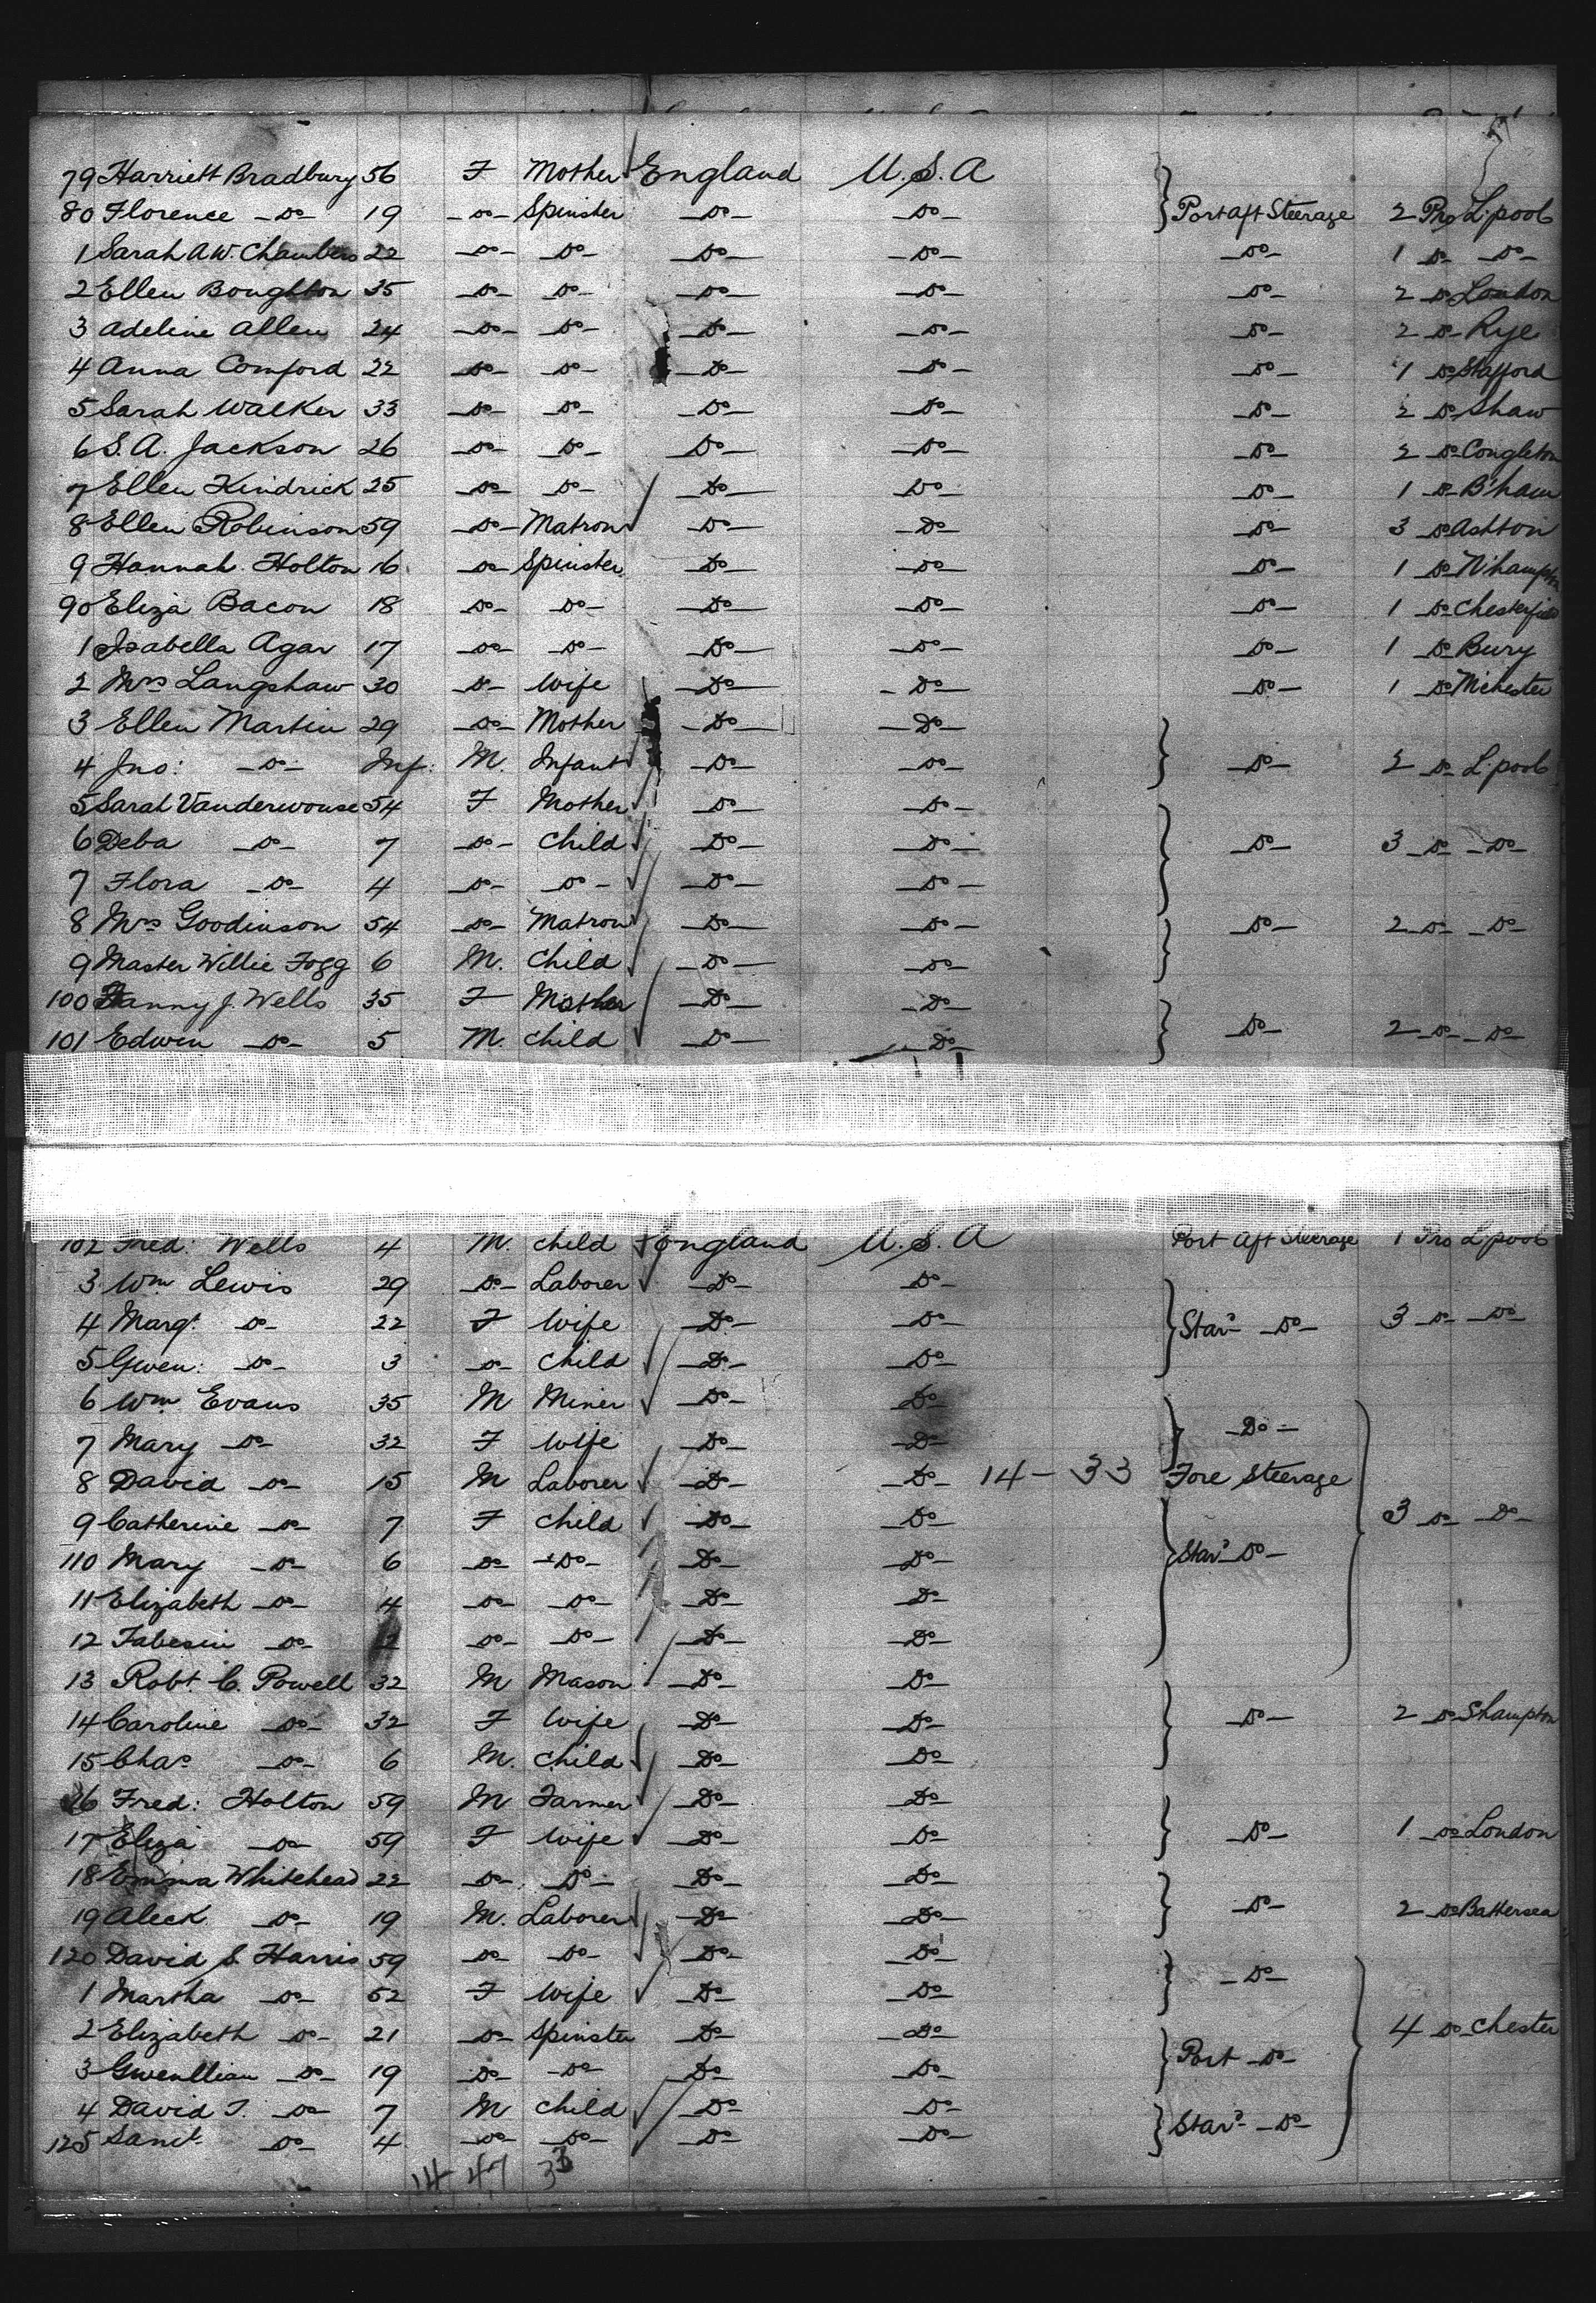 79 Harriett Bradbury 56 F Mother England U.S.A
80 Florence -Do- 19 -Do- Spinster -Do- -Do- Port aft Steerage 2 Pro L'pool
1 Sarah A.W. Chambers 22 -Do- -Do- -Do- -Do- -Do- 1 Do -Do-
2 Ellen Boughton 35 -Do- -Do- -Do- -Do- -Do- 2 Do London
3 Adeline Allen 24 -Do- -Do- -Do- -Do- -Do- 2 Do Rye
4 Anna Comford 22 -Do- -Do- -Do- -Do- -Do- 1 Do Stafford
5 Sarah Walker 33 -Do- -Do- -Do- -Do- -Do- 2 Do Shaw
6 S.A. Jackson 26 -Do- -Do- -Do- -Do- -Do- 2 Do Congleton
7 Ellen Kindrick 25 -Do- -Do- -Do- -Do- -Do- 1 Do B'ham
8 Ellen Robinson 59 -Do- Matron -Do- -Do- -Do- 3 Do Ashton
9 Hannah Holton 16 -Do- Spinster -Do- -Do- -Do- 1 Do N'hampton
90 Eliza Bacon 18 -Do- -Do- -Do- -Do- -Do- 1 Do Chesterfield
1 Isabella Agar 17 -Do- -Do- -Do- -Do- -Do- 1 Do Bury
2 Mrs Langshaw 30 -Do- Wife -Do- -Do- -Do- 1 Do M'chester
3 Ellen Martin 29 -Do- Mother -Do- -Do-
4 Jno: -Do- Inf: M. Infant -Do- -Do- -Do- 2 Do L'pool
5 Sarah Vanderwouse 54 F Mother -Do- -Do-
6 Deba -Do- 7 -Do- Child -Do- -Do- -Do- 3 -Do- -Do-
7 Flora -Do- 4 -Do- -Do- -Do- -Do-
8 Mrs Goodinson 54 -Do- Matron -Do- -Do- -Do- 2 -Do- -Do-
9 Master Willie Fogg 6 M. Child -Do- -Do-
100 Fanny J. Wells 35 F Mother -Do- -Do-
101 Edwin -Do- 5 M. Child -Do- -Do- -Do- 2 -Do- -Do-
102 Fred: Wells 4 M. Child England U.S.A Port Aft Steerage 1 Pro L'pool
3 Wm Lewis 29 -Do- Laborer -Do- -Do-
4 Margt. -Do- 22 F Wife -Do- -Do- Star'd -Do- 3 -Do- -Do-
5 Gwen: -Do- 3 -Do- Child -Do- -Do-
6 Wm Evans 35 M Miner -Do- -Do-
7 Mary -Do- 32 F Wife -Do- -Do- -Do-
8 David -Do- 15 M Laborer -Do- -Do- 14 - 33 Fore Steerage
9 Catherine -Do- 7 F Child -Do- -Do- 3 -Do- -Do-
110 Mary -Do- 6 -Do- -Do- -Do- -Do- Star'd -Do-
11 Elizabeth -Do- 4 -Do- -Do- -Do- -Do-
12 -Do- 2 -Do- -Do- -Do- -Do-
13 Robt. C. Powell 32 M Mason -Do- -Do-
14 Caroline -Do- 32 F Wife -Do- -Do- -Do- 2 Do S'hampton
15 Chas -Do- 6 M. Child -Do- -Do-
16 Fred: Holton 59 M Farmer -Do- -Do-
17 Eliza -Do- 59 F Wife -Do- -Do- -Do- 1 Do London
18 Emma Whitehead 22 -Do- -Do- -Do- -Do-
19 Aleck -Do- 19 M. Laborer -Do- -Do- -Do- 2 Do Battersea
120 David S. Harris 59 -Do- -Do- -Do- -Do-
1 Martha -Do- 52 F Wife -Do- -Do- -Do-
2 Elizabeth -Do- 21 -Do- Spinster -Do- -Do- 4 Do Chester
3 Gwenllian -Do- 19 -Do- -Do- -Do- -Do- Port -Do-
4 David T. -Do- 7 M Child -Do- -Do-
125 Saml. -Do- 4 -Do- -Do- -Do- -Do- Star'd -Do-
14 47 33